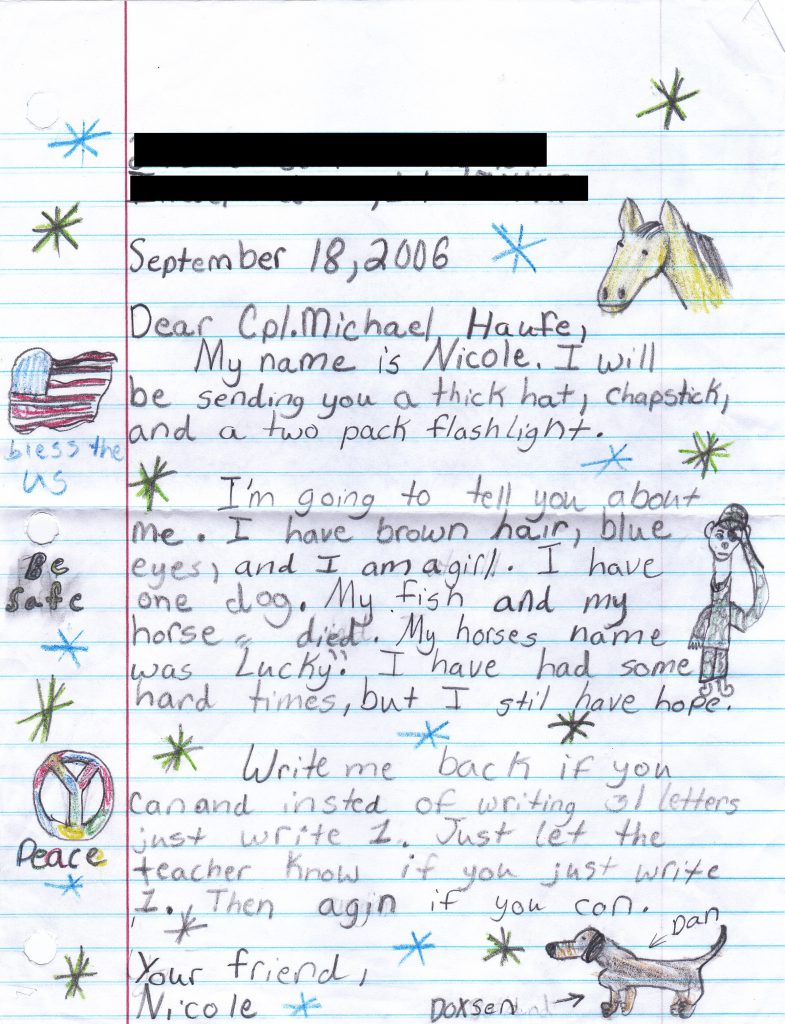 September 18, 2006
Dear Cpl. Michael Haufe,
My name is Nicole. I will
be sending you a thick hat, chapstick,
and a two pack flashlight.
bless the
US
I'm going to tell you about
me. I have brown hair, blue
eyes, and I am a girl. I have
one dog. My fish and my
horse died. My horses name
was Lucky". I have had some
hard times, but I stil have hope.
Be
Safe
Write me back if you
can and insted of writing 31 letters
just write 1. Just let the
teacher know if you just write
1. Then agin if you can.
Peace
Your friend,
Nicole
Dan
Doxsen